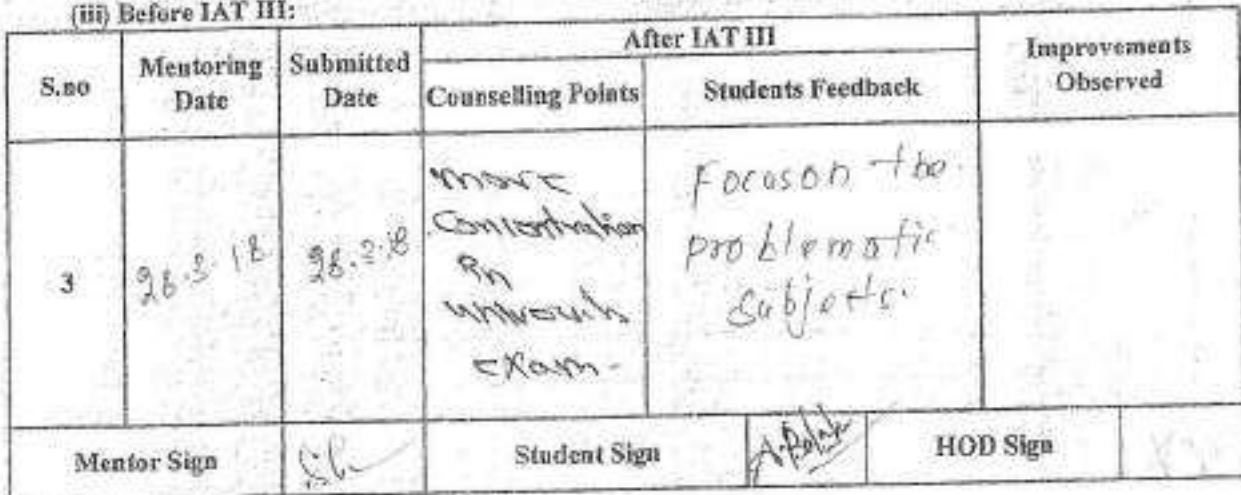 (iii) Before IAT III:
S.no
Mentoring
Date
Submitted
Date
After IAT III
Counselling Points
Students Feedback
Improvements
Observed
3
28.3.18
28.3.18
more
Concentration
in
exam.
Focus on the
problematic
Subjects.
Mentor Sign
Student Sign
HOD Sign